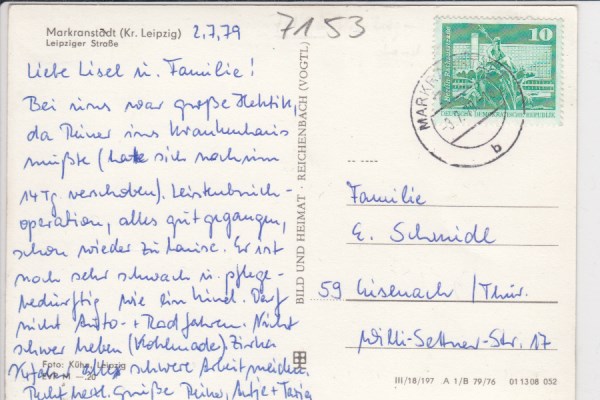 Markranstädt (Kr. Leipzig) 2.7.79
Leipziger Straße
7153
Liebe Lisel u. Familie!
Bei uns war große Hektik,
da Reiner ins Krankenhaus
mußte (hat sich noch um
14 Tg. verschoben). Leistenbruch-
operation, alles gut gegangen,
schon wieder zu Hause. Er ist
noch sehr schwach u. pflege-
bedürftig wie ein Kind. Darf
nicht Auto- + Radfahren. Nicht
schwer heben (Kohlenade) Zirka
alles schwere Arbeit meiden.
Recht herzl. Grüße Reiner, Antje + Tanja
Foto: Kühn, Leipzig
BILD UND HEIMAT · REICHENBACH (VOGTL)
10
DEUTSCHE DEMOKRATISCHE REPUBLIK
MARKR
b
Familie
E. Schmidl
59 Eisenach / Thür.
Willi-Settner-Str. 17
III/18/197 A 1/B 79/76 01 13 08 052